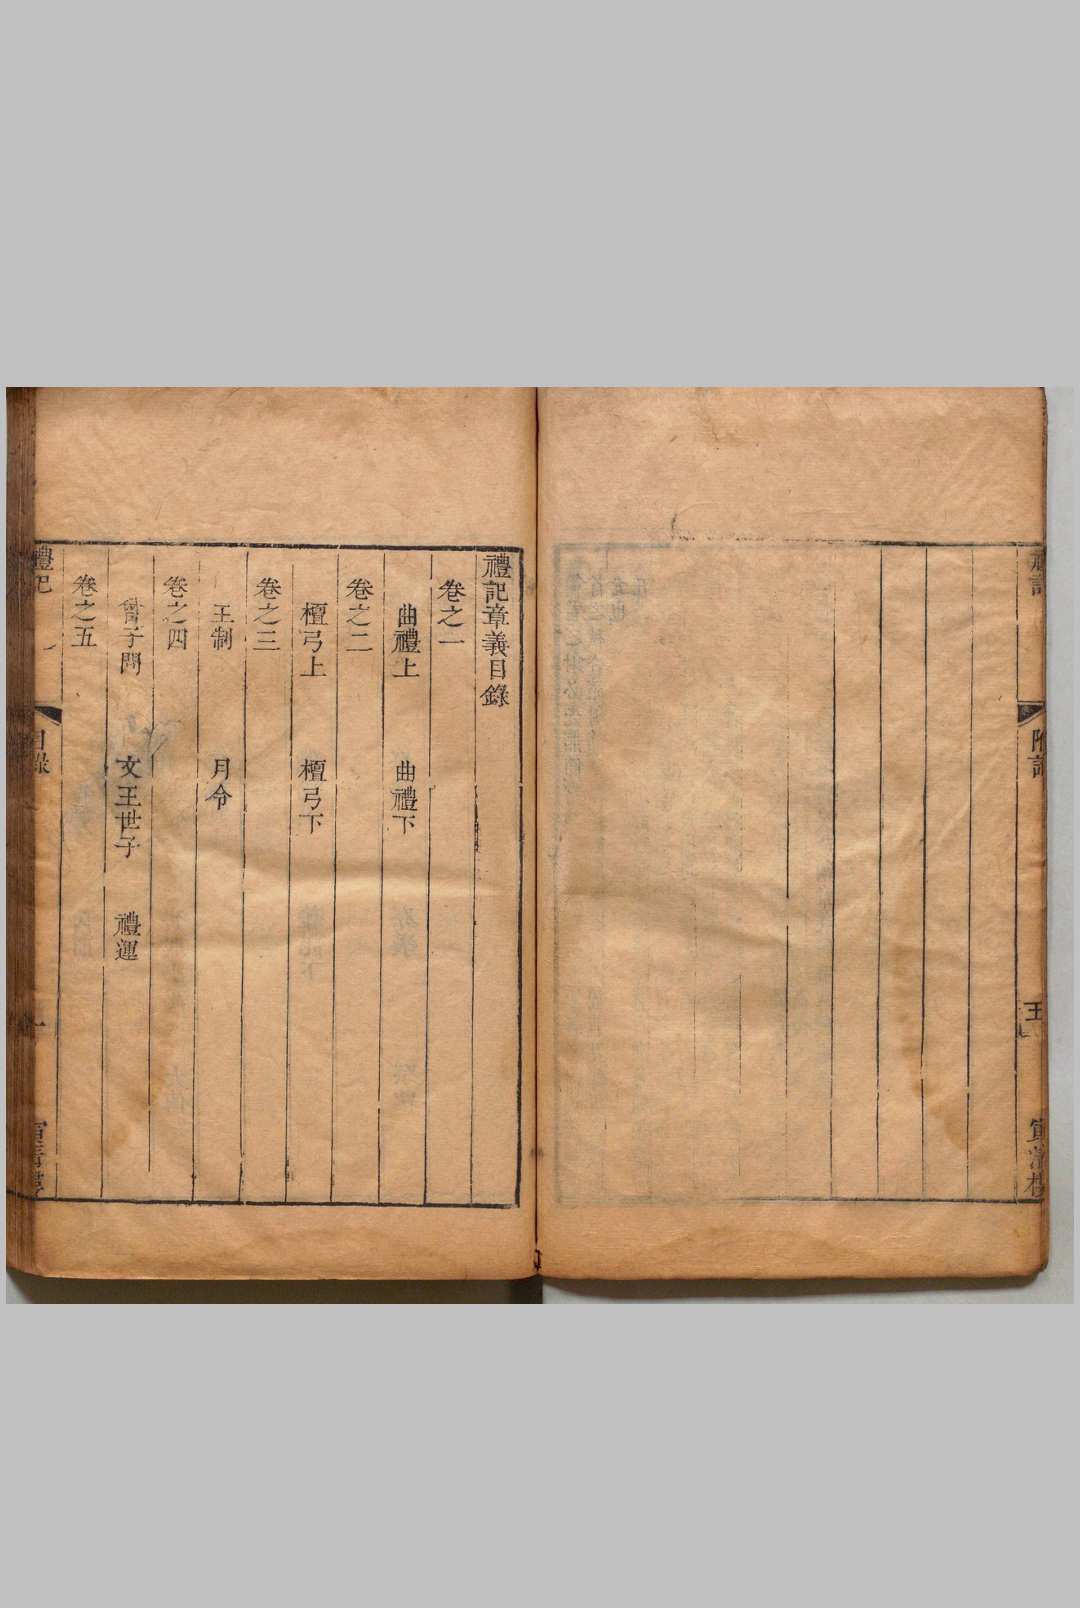 禮記章義目錄
卷之一
曲禮上 曲禮下
卷之二
檀弓上 檀弓下
卷之三
王制 月令
卷之四
曾子問 文王世子 禮運
卷之五
禮記 目錄 一
禮記 附記 五